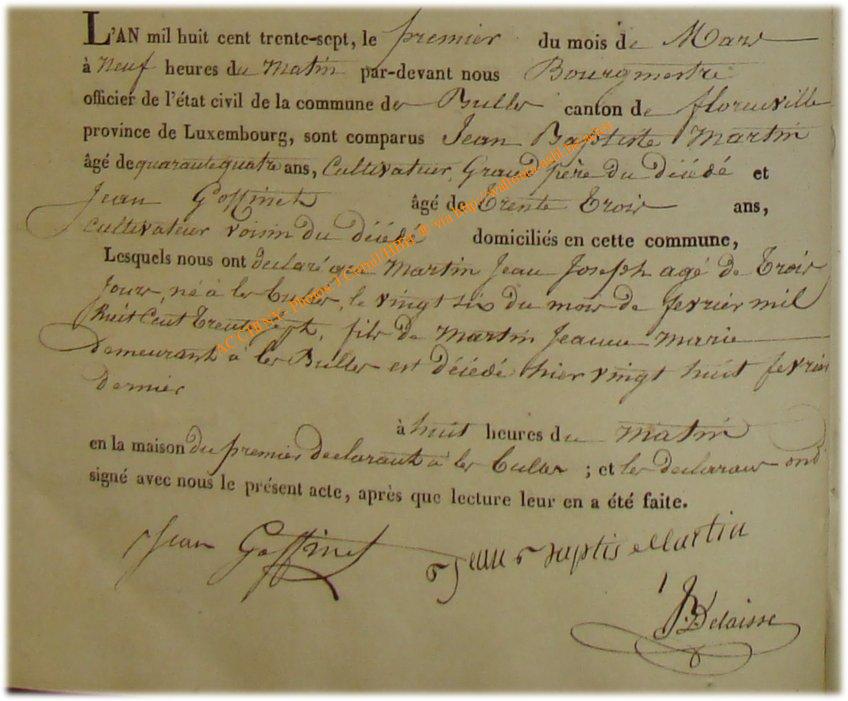 L'AN mil huit cent trente-sept, le premier du mois de Mars
à Neuf heures du Matin par-devant nous Bourgmestre
officier de l'état civil de la commune de Bulles canton de florenville
province de Luxembourg, sont comparus Jean Baptiste Martin
âgé de quarante quatre ans, Cultivateur, Grand père du décédé et
Jean Goffinet âgé de trente trois ans,
cultivateur voisin du décédé domiciliés en cette commune,
Lesquels nous ont declaré que Martin Jean Joseph agé de trois
jours, né à les bulles, le vingt six du mois de fevrier mil
huit cent trente sept, fils de Martin Jeanne Marie
demeurant à les Bulles est décédé hier vingt huit fevrier
dernier
à huit heures du matin
en la maison du premier declarant à les bulles ; et les declarans ont
signé avec nous le présent acte, après que lecture leur en a été faite.
Jean Goffinet Jean Baptis Martin
JB Delaisse